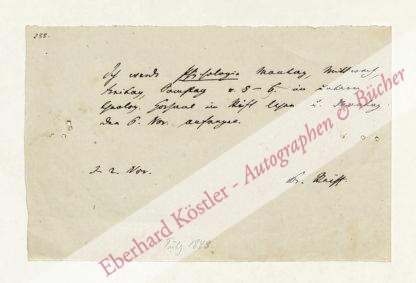 288.
Ich werde Psychologie Montag, Mittwoch
Freitag, Samstag v. 5 - 6. im untern
Hörsaal im Stift lesen u. Montag
den 6. Nov. anfangen.
d. 2. Nov.
Dr. Reiff.
1848
Eberhard Köstler - Autographen & Bücher